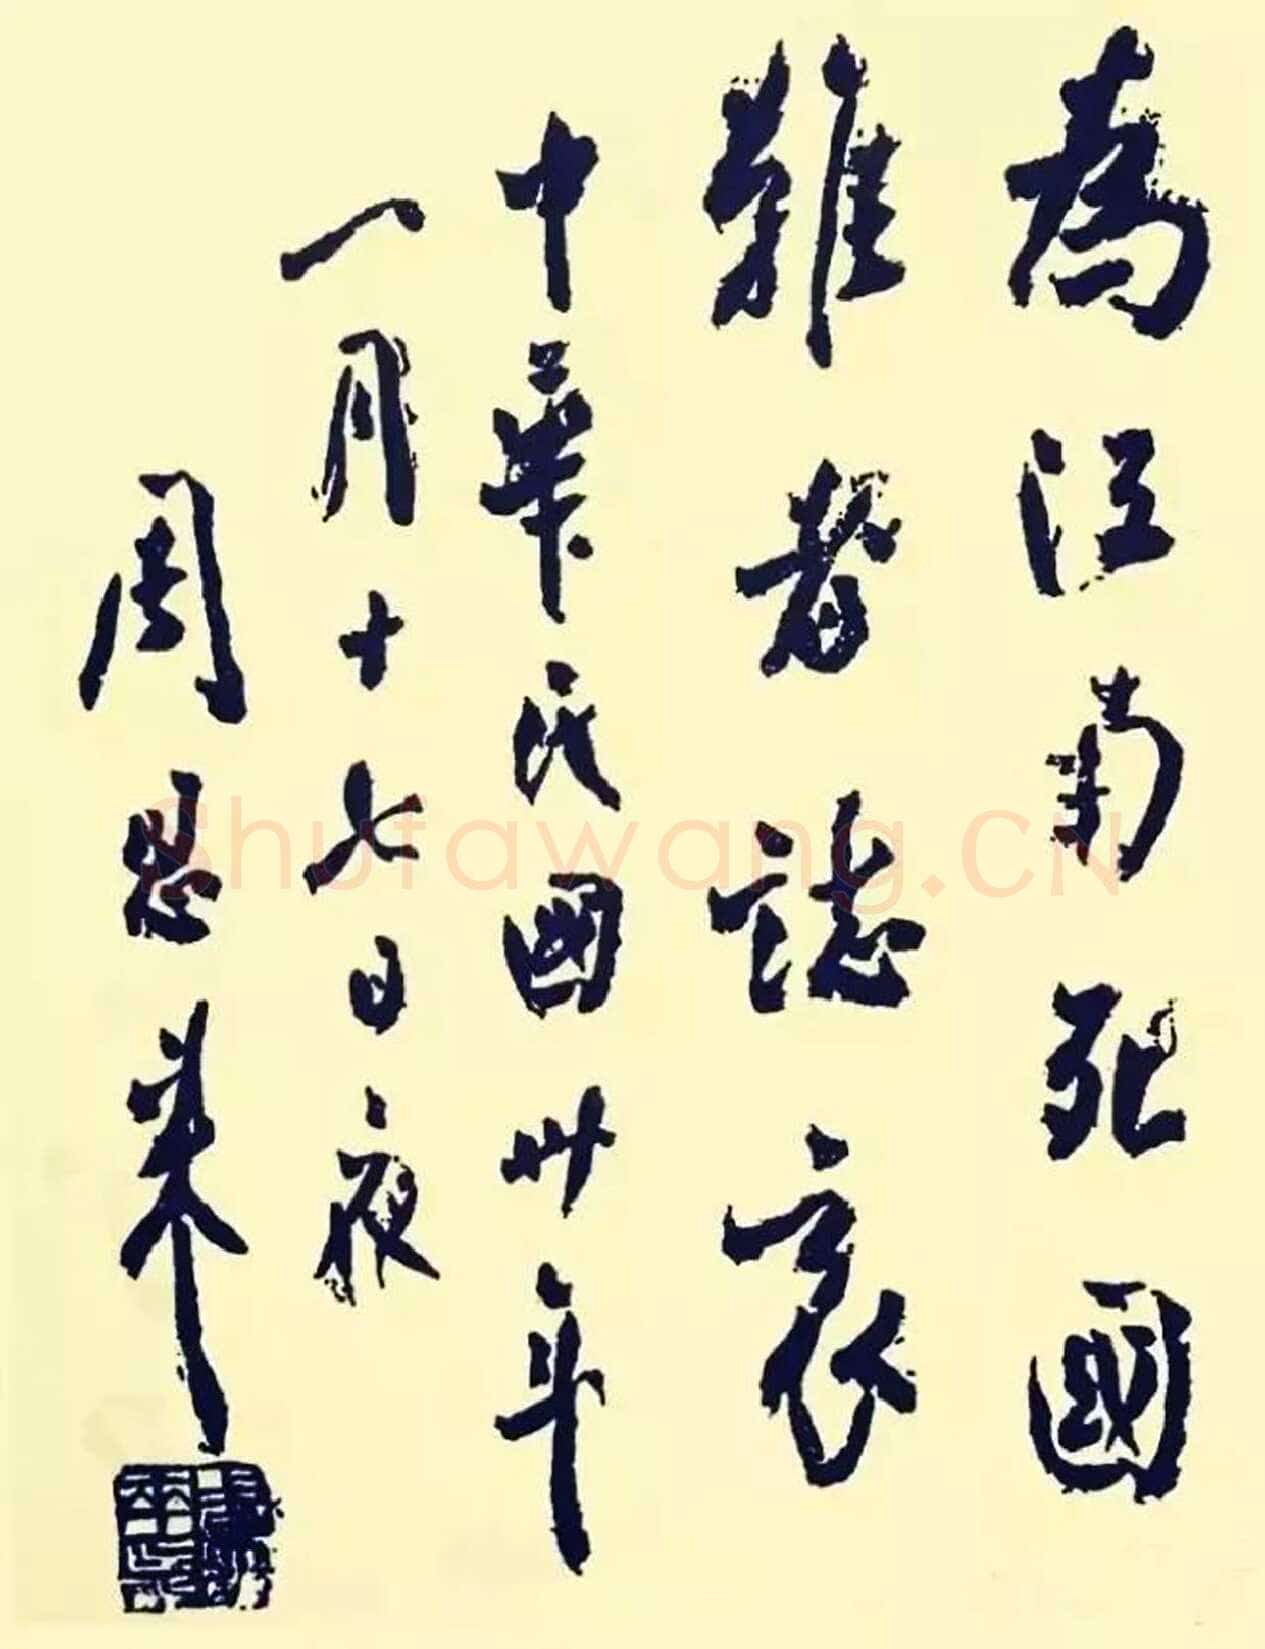 為江南死國
難者誌哀
中華民國卅年
一月十七日夜
周恩來
Shufawang.CN